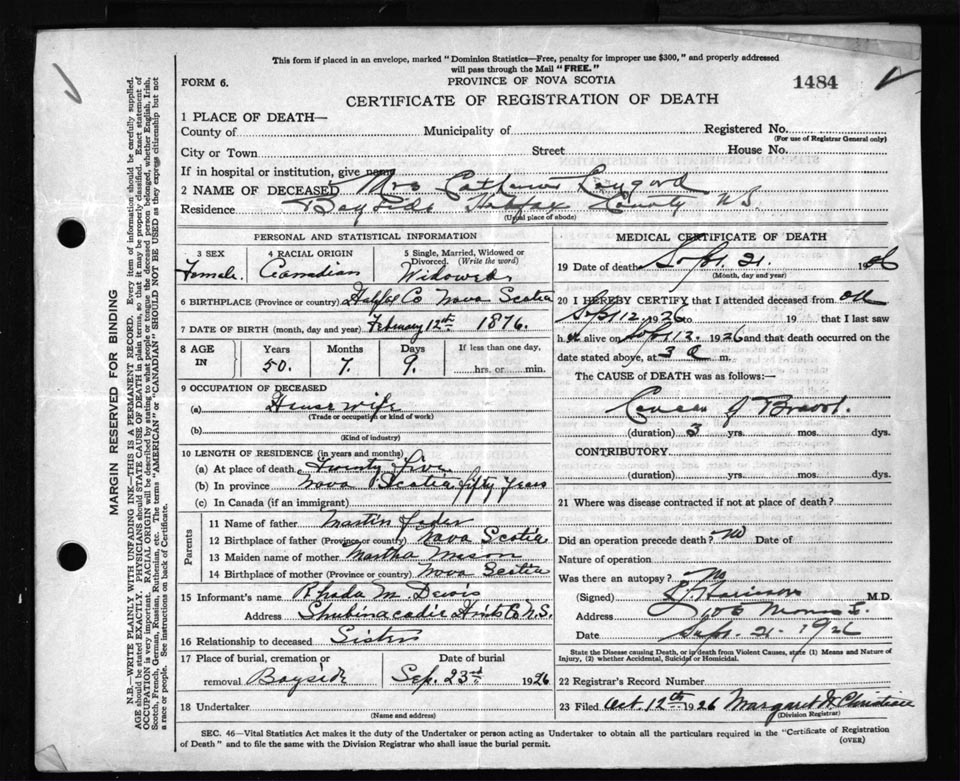 This form if placed in an envelope, marked "Dominion Statistics—Free, penalty for improper use $300," and properly addressed
will pass through the Mail "FREE."
FORM 6.
PROVINCE OF NOVA SCOTIA
1484
CERTIFICATE OF REGISTRATION OF DEATH
1 PLACE OF DEATH—
County of Municipality of Registered No.
(For use of Registrar General only)
City or Town Street House No.
If in hospital or institution, give name
2 NAME OF DECEASED Mrs
Residence Bayside Halifax County N.S.
(Usual place of abode)
PERSONAL AND STATISTICAL INFORMATION
3 SEX 4 RACIAL ORIGIN 5 Single, Married, Widowed or
Divorced. (Write the word)
Female Canadian Widowed
6 BIRTHPLACE (Province or country) Halifax Co Nova Scotia
7 DATE OF BIRTH (month, day and year) February 12th 1876.
8 AGE IN Years Months Days If less than one day,
50. 7. 9. hrs. or min.
9 OCCUPATION OF DECEASED
(a) House wife
(Trade or occupation or kind of work)
(b)
(Kind of industry)
10 LENGTH OF RESIDENCE (in years and months)
(a) At place of death Twenty five
(b) In province Nova Scotia fifty years
(c) In Canada (if an immigrant)
Parents
11 Name of father Martin
12 Birthplace of father (Province or country) Nova Scotia
13 Maiden name of mother Martha Mason
14 Birthplace of mother (Province or country) Nova Scotia
15 Informant's name Rhoda M.
Address Shubenacadie Hants Co N.S.
16 Relationship to deceased Sister
17 Place of burial, cremation or Date of burial
removal Bayside Sep. 23rd 1926
18 Undertaker
(Name and address)
MEDICAL CERTIFICATE OF DEATH
19 Date of death Sept. 21. 1926
(Month, day and year)
20 I HEREBY CERTIFY that I attended deceased from on
Sept 12 1926 to 19 that I last saw
her alive on Sept 12. 1926 and that death occurred on the
date stated above, at 3 m.
The CAUSE of DEATH was as follows:—
Cancer of Breast.
(duration) 3 yrs. mos. dys.
CONTRIBUTORY
(duration) yrs. mos. dys.
21 Where was disease contracted if not at place of death?
Did an operation precede death? no Date of
Nature of operation
Was there an autopsy? No
(Signed) M.D.
Address
Date Sept. 21. 1926
State the Disease causing Death, or in death from Violent Causes, state (1) Means and Nature of
Injury, (2) whether Accidental, Suicidal or Homicidal.
22 Registrar's Record Number
23 Filed Oct 12th 1926 Margaret Christian
(Division Registrar)
SEC. 46—Vital Statistics Act makes it the duty of the Undertaker or person acting as Undertaker to obtain all the particulars required in the "Certificate of Registration
of Death" and to file the same with the Division Registrar who shall issue the burial permit. (OVER)
MARGIN RESERVED FOR BINDING
N.B.—WRITE PLAINLY WITH UNFADING INK—THIS IS A PERMANENT RECORD. Every item of information should be carefully supplied.
AGE should be stated EXACTLY. PHYSICIANS should STATE CAUSE OF DEATH in plain terms, so that it may be properly classified. Exact statement of
OCCUPATION is very important. RACIAL ORIGIN will be described by stating to what people or tongue the deceased person belonged, whether English, Irish,
Scotch, French, German, Russian, Ruthenian, etc. The terms "AMERICAN" or "CANADIAN" SHOULD NOT BE USED as they express citizenship but not
a race or people. See instructions on back of Certificate.